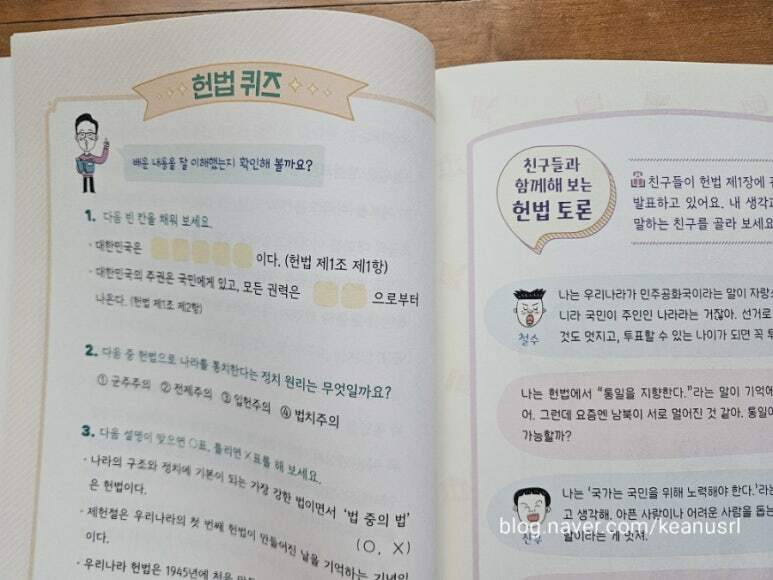 헌법 퀴즈
배운 내용을 잘 이해했는지 확인해 볼까요?
1. 다음 빈 칸을 채워 보세요.
· 대한민국은 이다. (헌법 제1조 제1항)
· 대한민국의 주권은 국민에게 있고, 모든 권력은 으로부터
나온다. (헌법 제1조 제2항)
2. 다음 중 헌법으로 나라를 통치한다는 정치 원리는 무엇일까요?
① 군주주의 ② 전제주의 ③ 입헌주의 ④ 법치주의
3. 다음 설명이 맞으면 ○표, 틀리면 ×표를 해 보세요.
· 나라의 구조와 정치에 기본이 되는 가장 강한 법이면서 '법 중의 법'
은 헌법이다.
(○, ×)
· 제헌절은 우리나라의 첫 번째 헌법이 만들어진 날을 기억하는 기념일
이다.
· 우리나라 헌법은 1945년에 처음
친구들과
함께해 보는
헌법 토론
친구들이 헌법 제1장에
발표하고 있어요. 내 생각과
말하는 친구를 골라 보세요
나는 우리나라가 민주공화국이라는 말이 자랑스
니라 국민이 주인인 나라라는 거잖아. 선거로
것도 멋지고, 투표할 수 있는 나이가 되면 꼭 투
철수
나는 헌법에서 "통일을 지향한다."라는 말이 기억에
어. 그런데 요즘엔 남북이 서로 멀어진 것 같아. 통일이
가능할까?
나는 '국가는 국민을 위해 노력해야 한다.'라는
고 생각해. 아픈 사람이나 어려운 사람을 돕는
할이라는 게 멋져.
진수
blog.naver.com/keanusrl